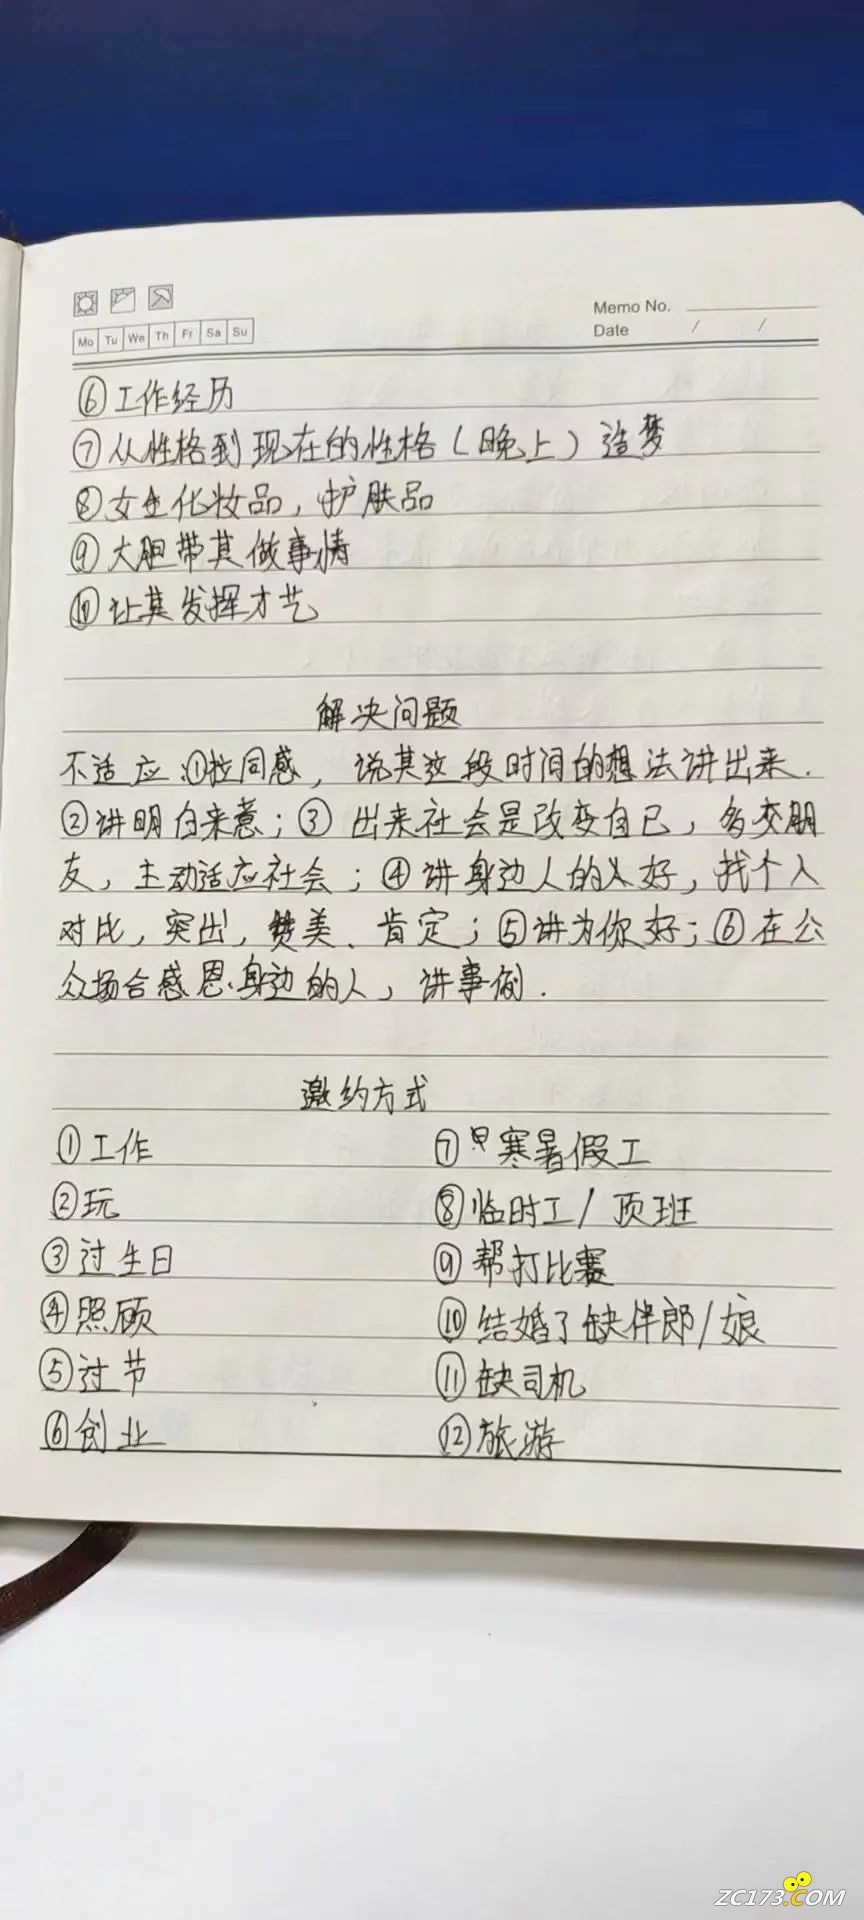 Memo No.
Date / /
Mo Tu We Th Fr Sa Su
⑥工作经历
⑦从性格到现在的性格(晚上)造梦
⑧女生化妆品,护肤品
⑨大胆带其做事情
⑩让其发挥才艺
解决问题
不适应:①拉同感,说其这段时间的想法讲出来.
②讲明白来意;③出来社会是改变自己,多交朋
友,主动适应社会;④讲身边人的好,找个人
对比,突出,赞美、肯定;⑤讲为你好;⑥在公
众场合感恩身边的人,讲事例.
邀约方式
①工作 ⑦寒暑假工
②玩 ⑧临时工/顶班
③过生日 ⑨帮打比赛
④照顾 ⑩结婚了缺伴郎/娘
⑤过节 ⑪缺司机
⑥创业 ⑫旅游
ZC173.COM